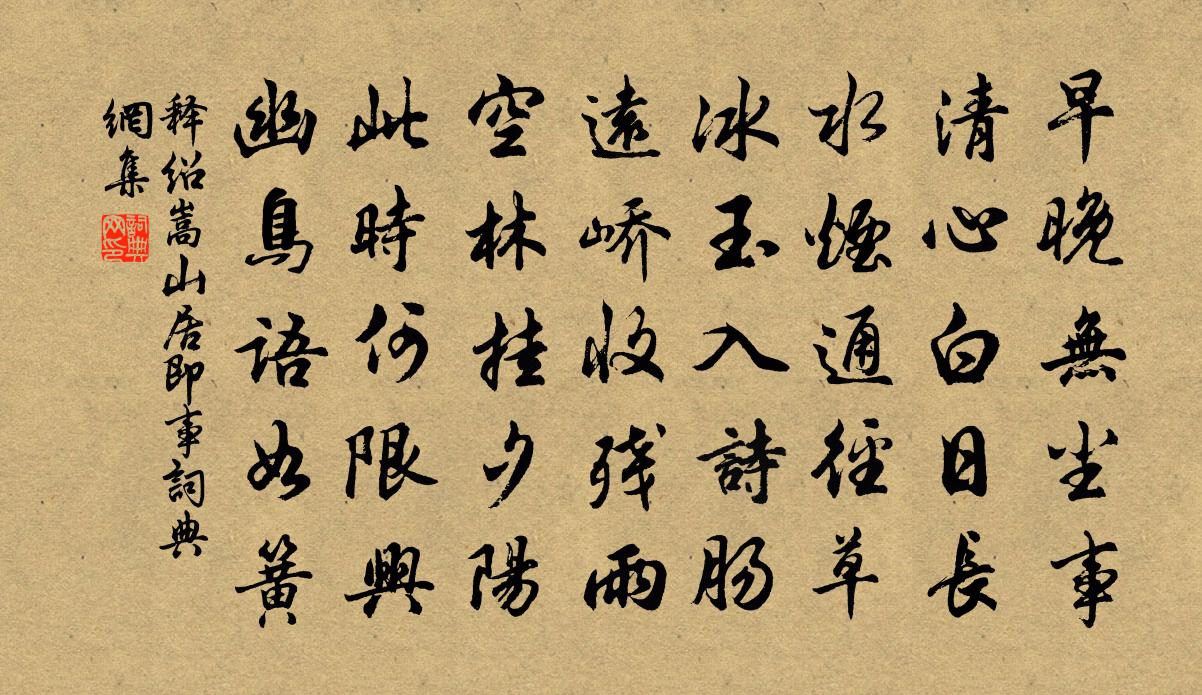 早晚無尘事
清心白日長
水煙通徑草
冰玉入詩肠
遠嶠收残雨
空林挂夕陽
此時何限興
幽鳥語如簧
释绍嵩山居即事詞典
網集
詞典网印